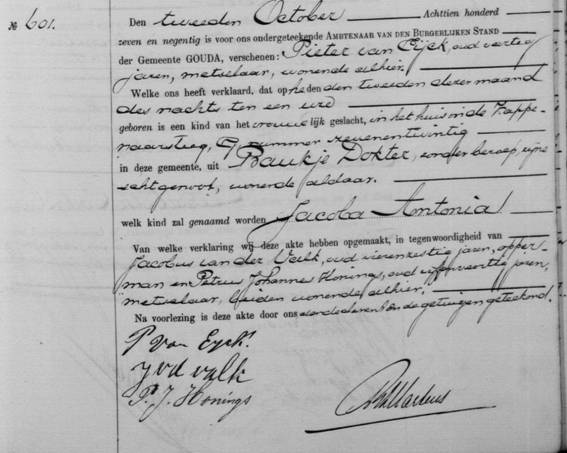 № 601.
Den tweeden October Achttien honderd
zeven en negentig is voor ons ondergeteekende AMBTENAAR VAN DEN BURGERLIJKEN STAND
der Gemeente GOUDA, verschenen: Pieter van Eijck, oud veertig
jaren, metselaar, wonende alhier.
Welke ons heeft verklaard, dat op heden den tweeden dezer maand
des nachts ten een ure
geboren is een kind van het vrouwelijk geslacht, in het huis in de
naarsteeg, Q nummer zevenentwintig
in deze gemeente, uit Baukje Dokter, zonder beroep, zijne
echtgenoot, wonende aldaar.
welk kind zal genaamd worden Jacoba Antonia.
Van welke verklaring wij deze akte hebben opgemaakt, in tegenwoordigheid van
Jacobus van der Valk, oud jaren, opper-
man en Petrus Johannes Honings, oud jaren,
metselaar, beiden wonende alhier.
Na voorlezing is deze akte door ons en de getuigen geteekend.
P van Eyck.
J v d valk
P. J. Honings